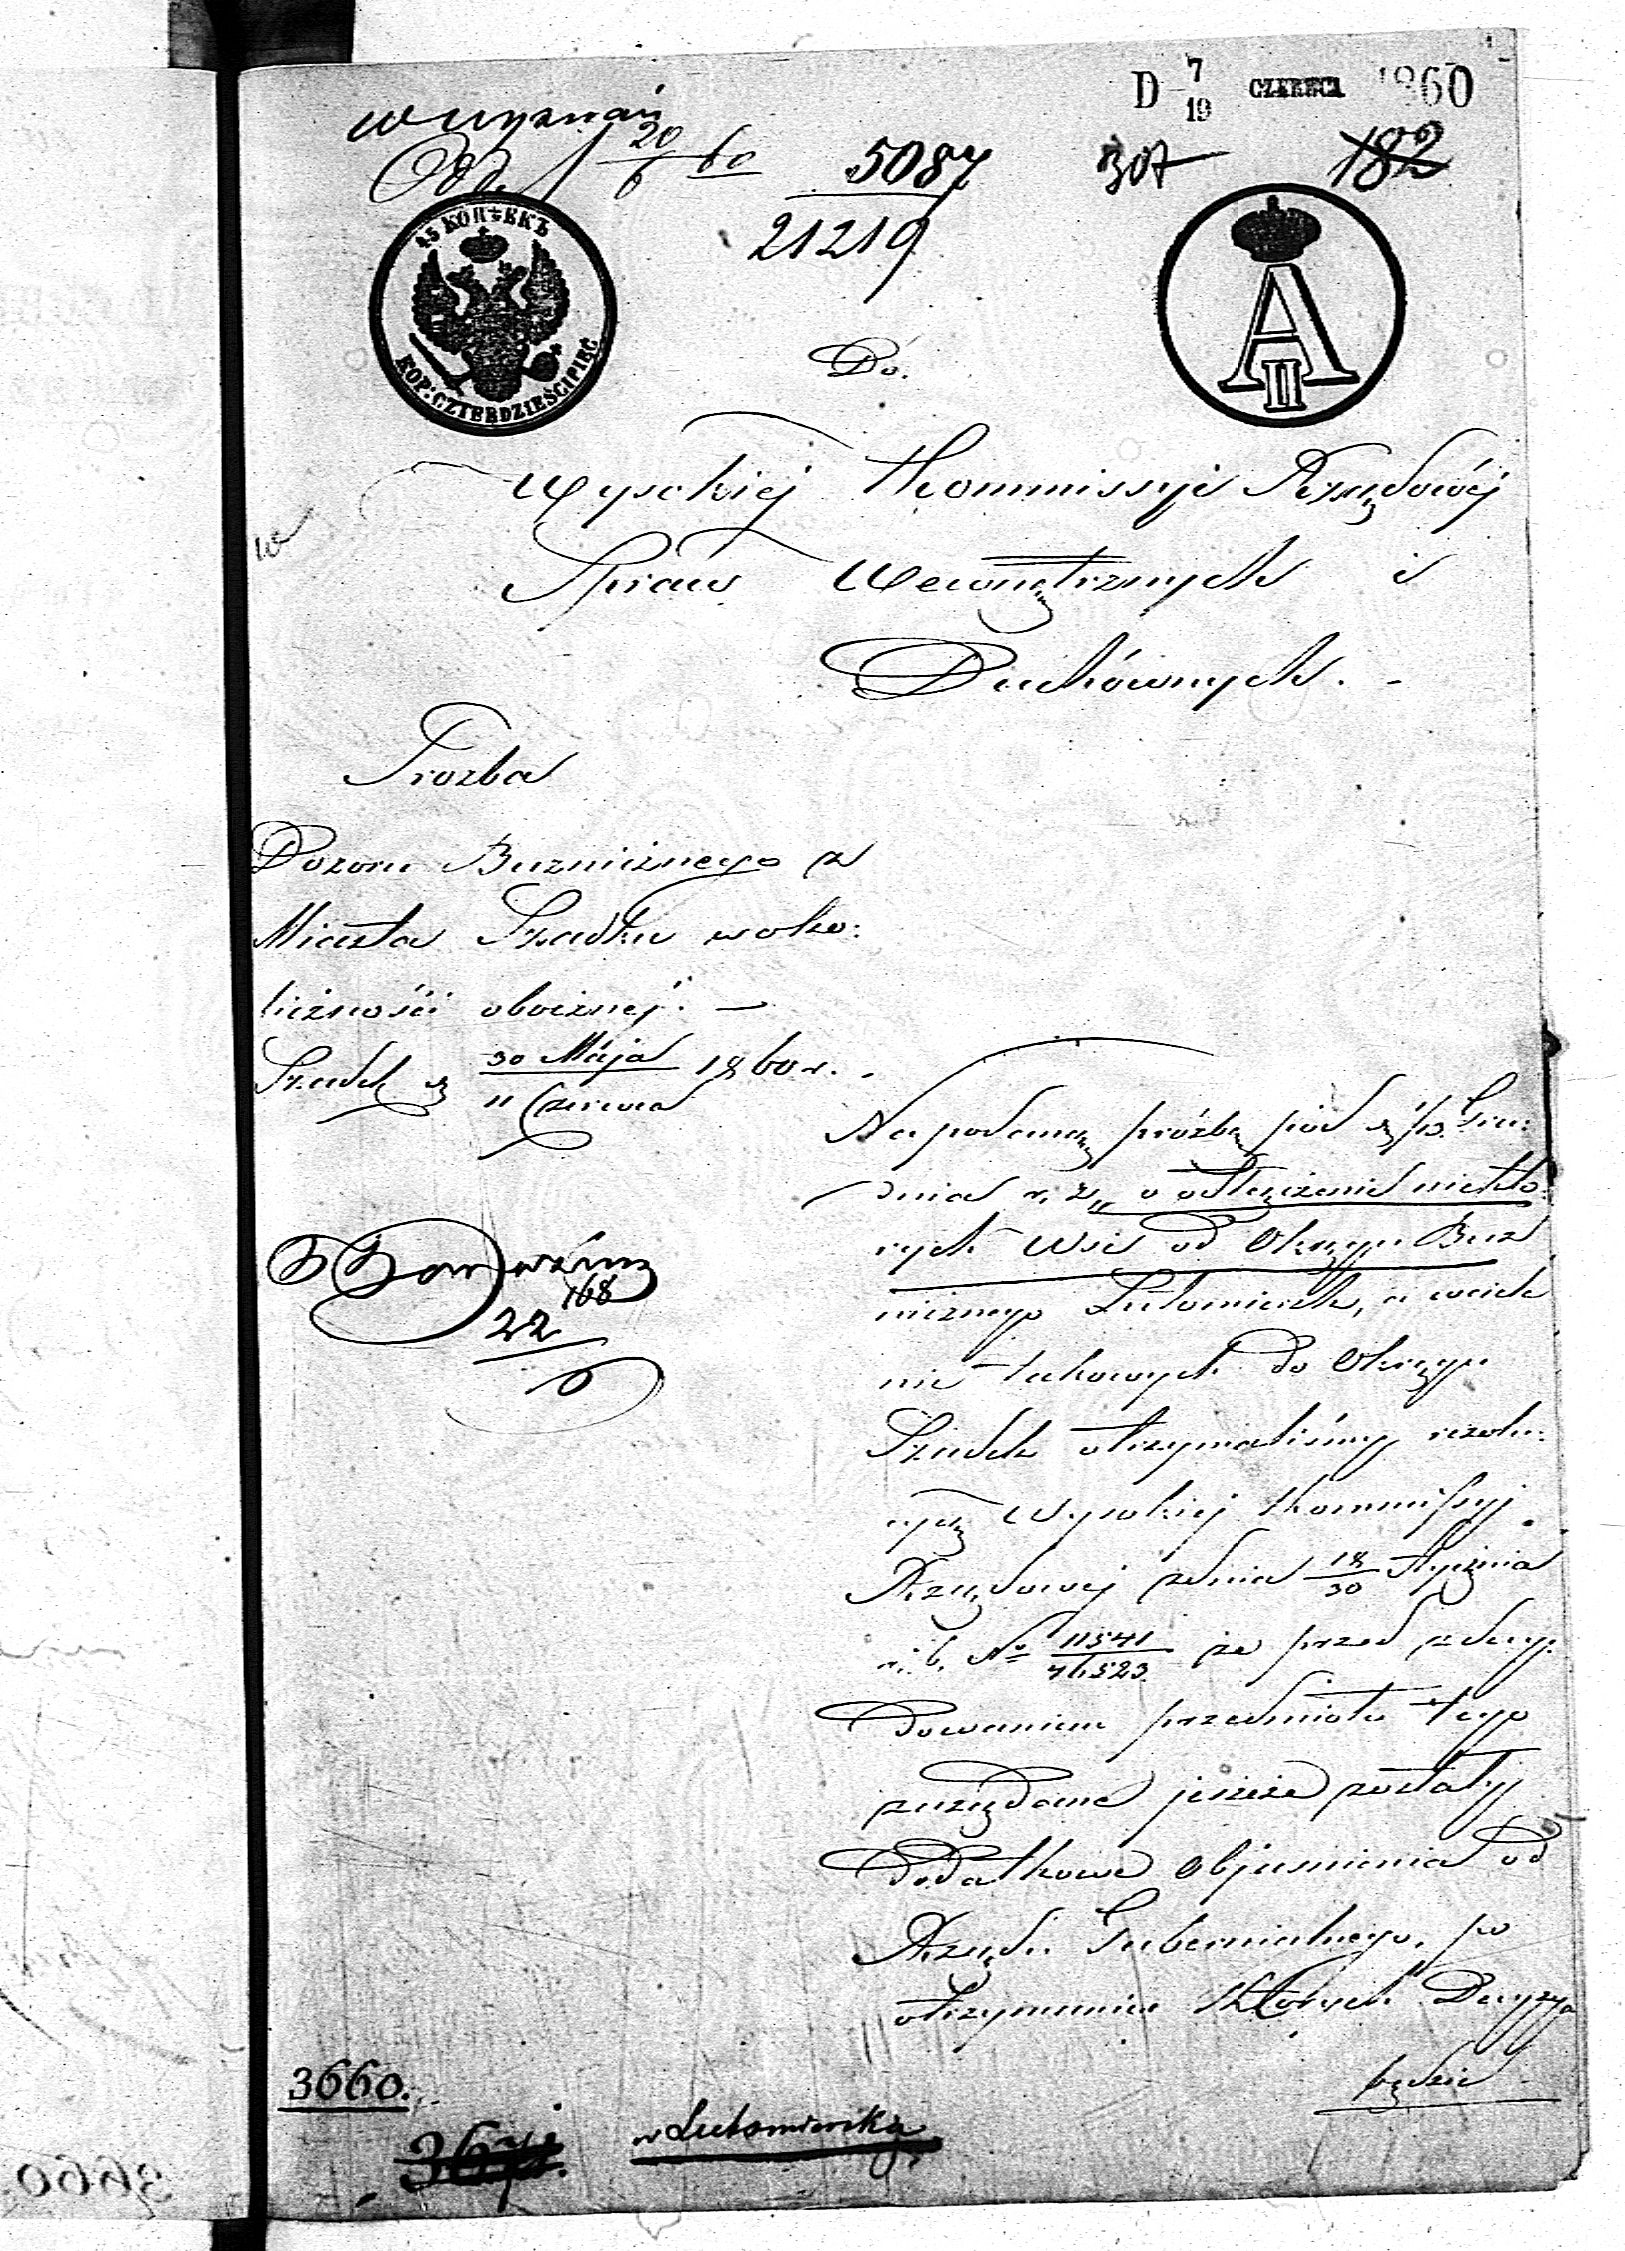 D 7/19 CZERWCA 1860
w wyznań
Odd. 20/6 60 5087 307 182
21219
45 КОПѢЕКЪ
KOP: CZTERDZIEŚCI PIĘĆ
A II
Do.
Wysokiej Kommissyi Rządowéj
Spraw Wewnętrznych i
Duchównych. -
Prozba
Dozoru Buznicznego z
Miasta Szadku w oko:
liczności obocznej. —
Szadek d 30 Maja / 11 Czerwca 1860 r.
Na podaną prózbę pod d 1/13 Gru:
dnia r. z. o odłączenie niektó:
rych Wsi od Okręgu Buz
nicznego Lutomiersk, a wciele
nie takowych do Okręgu
Szadek otrzymaliśmy rezolu:
cyą Wysokiej Kommissyj
Rządowej z dnia 18/30 Stycznia
r. b. No 11541/46523 że przed zdecy:
dowaniem przedmiotu tego
zarządane jeszcze zostały
Dodatkowe objasnienia od
Rządu Gubernialnego, po
otrzymaniu których Decyzja
będzie
168
22
6
3660.
w Lutomiersku